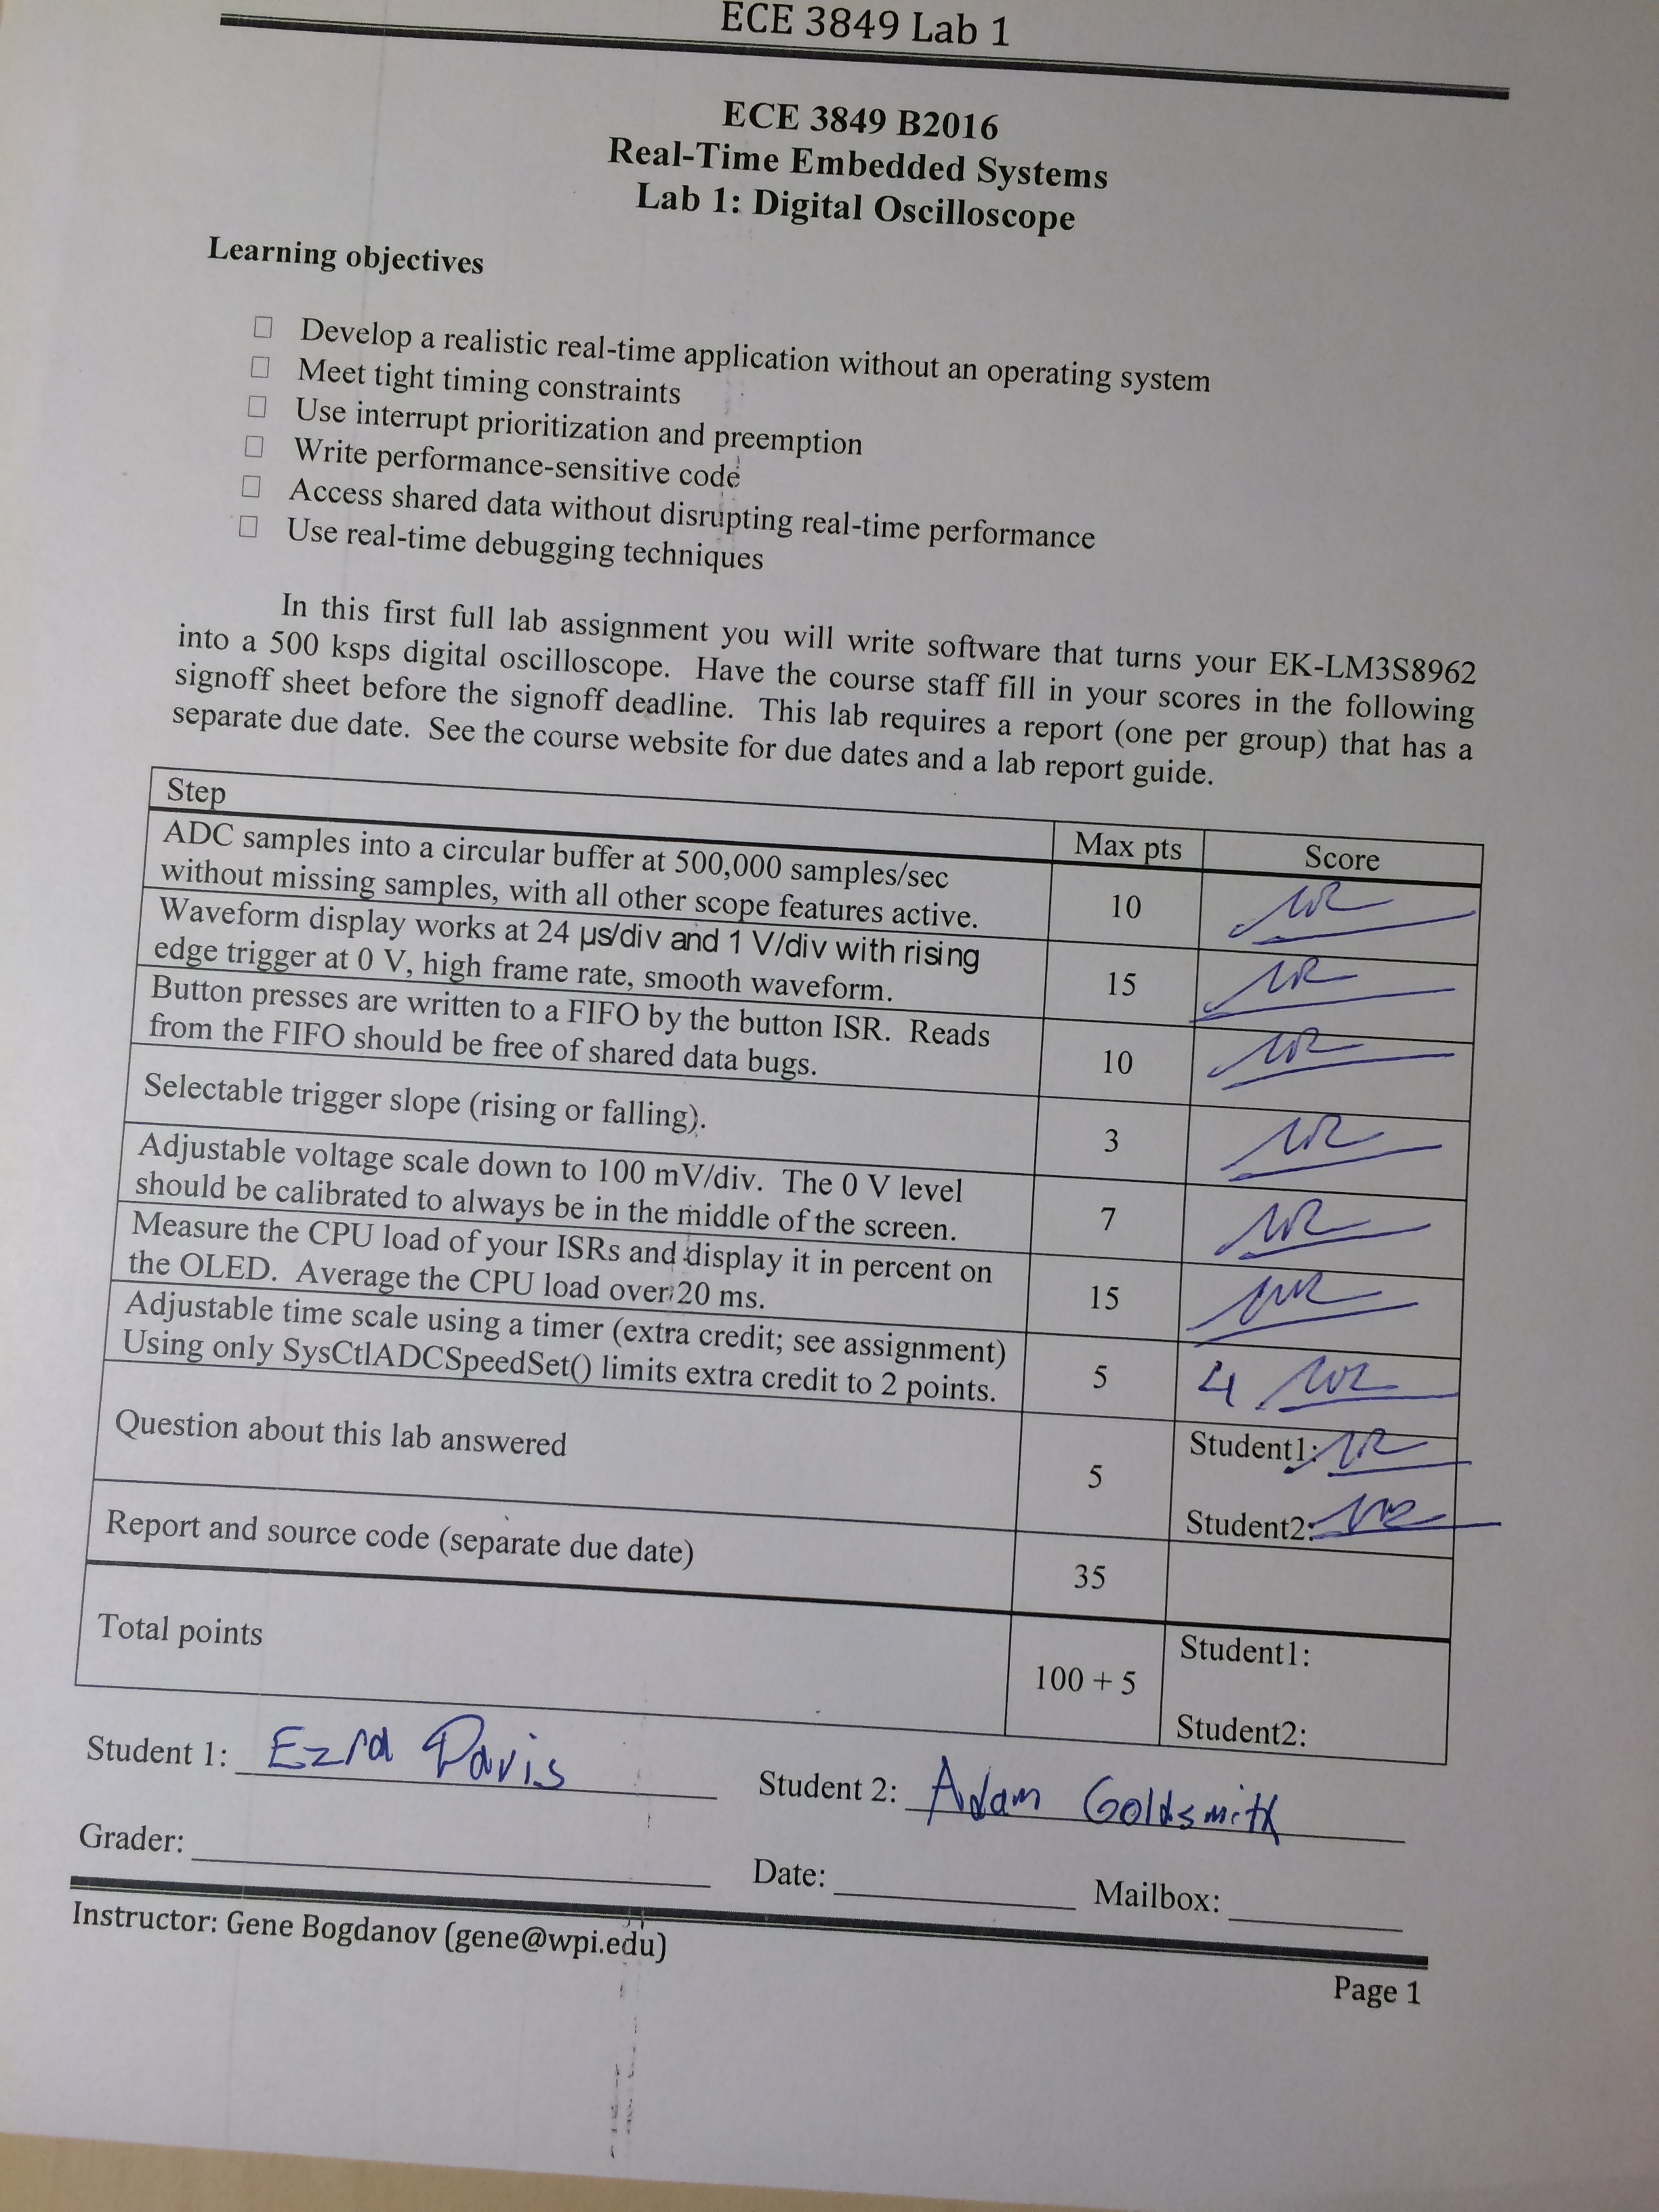 ECE 3849 Lab 1
ECE 3849 B2016
Real-Time Embedded Systems
Lab 1: Digital Oscilloscope
Learning objectives
Develop a realistic real-time application without an operating system
Meet tight timing constraints
Use interrupt prioritization and preemption
Write performance-sensitive code
Access shared data without disrupting real-time performance
Use real-time debugging techniques
In this first full lab assignment you will write software that turns your EK-LM3S8962
into a 500 ksps digital oscilloscope. Have the course staff fill in your scores in the following
signoff sheet before the signoff deadline. This lab requires a report (one per group) that has a
separate due date. See the course website for due dates and a lab report guide.
Step Max pts Score
ADC samples into a circular buffer at 500,000 samples/sec
without missing samples, with all other scope features active. 10
Waveform display works at 24 µs/div and 1 V/div with rising
edge trigger at 0 V, high frame rate, smooth waveform. 15
Button presses are written to a FIFO by the button ISR. Reads
from the FIFO should be free of shared data bugs. 10
Selectable trigger slope (rising or falling). 3
Adjustable voltage scale down to 100 mV/div. The 0 V level
should be calibrated to always be in the middle of the screen. 7
Measure the CPU load of your ISRs and display it in percent on
the OLED. Average the CPU load over 20 ms. 15
Adjustable time scale using a timer (extra credit; see assignment)
Using only SysCtlADCSpeedSet() limits extra credit to 2 points. 5 4
Question about this lab answered 5 Student1:
Student2:
Report and source code (separate due date) 35
Total points 100 + 5 Student1:
Student2:
Student 1: Ezra Davis Student 2: Adam Goldsmith
Grader: Date: Mailbox:
Instructor: Gene Bogdanov (gene@wpi.edu)
Page 1